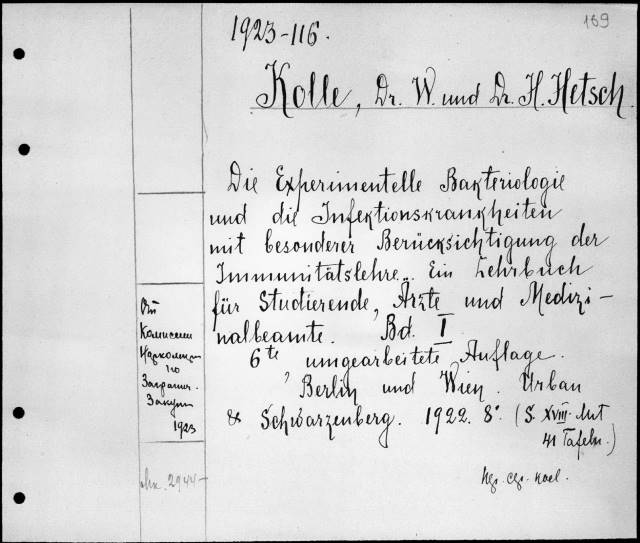 169
1923-116.
Kolle, Dr. W. und Dr. H. Hetsch.
Die Experimentelle Bakteriologie
und die Infektionskrankheiten
mit besonderer Berücksichtigung der
Immunitätslehre. Ein Lehrbuch
für Studierende, Ärzte und Medizi-
nalbeamte. Bd. I
6te umgearbeitete Auflage.
Berlin und Wien. Urban
& Schwarzenberg. 1922. 8°. (S. XVIII. Mit
41 Tafeln.)
От
Комиссии
по
Загранич.
Закуп
1923
2944-